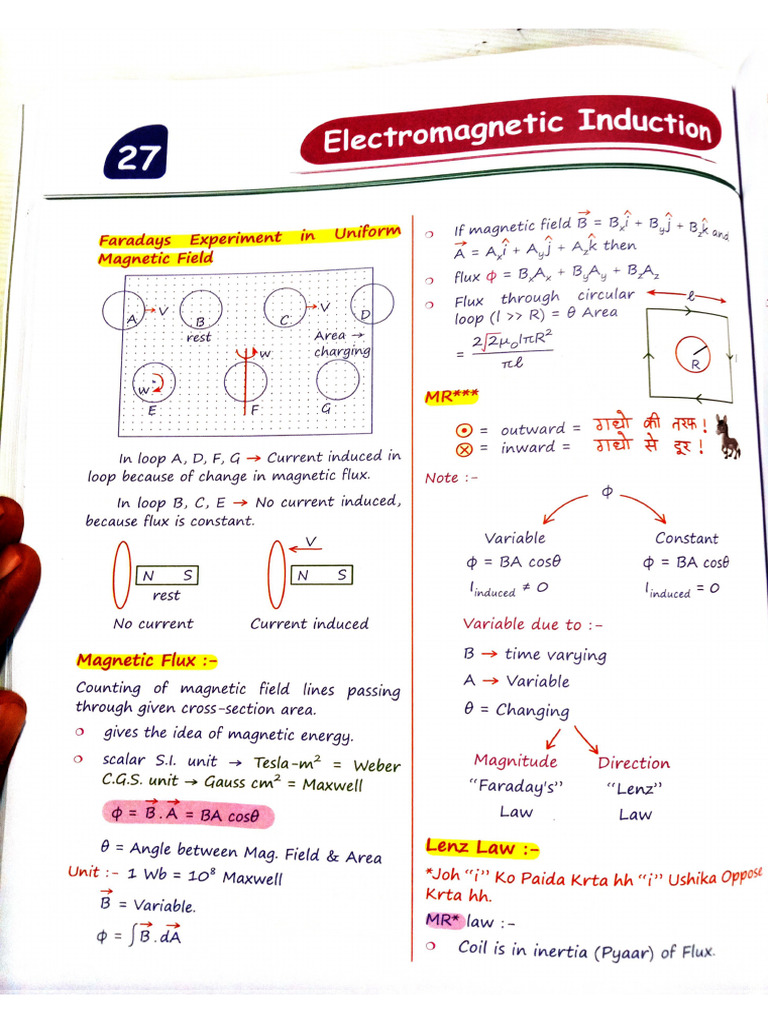 27
Electromagnetic Induction
Faradays Experiment in Uniform
Magnetic Field
A
V
B
rest
C
V
D
Area →
charging
w
E
w
F
G
In loop A, D, F, G → Current induced in
loop because of change in magnetic flux.
In loop B, C, E → No current induced,
because flux is constant.
N S
rest
No current
V
N S
Current induced
Magnetic Flux :-
Counting of magnetic field lines passing
through given cross-section area.
gives the idea of magnetic energy.
scalar S.I. unit → Tesla-m² = Weber
C.G.S. unit → Gauss cm² = Maxwell
ϕ = B⃗ . A⃗ = BA cosθ
θ = Angle between Mag. Field & Area
Unit :- 1 Wb = 10⁸ Maxwell
B⃗ = Variable.
ϕ = ∫B⃗ . dA⃗
If magnetic field B⃗ = Bₓî + Bᵧĵ + B_z k̂ and
A⃗ = Aₓî + Aᵧĵ + A_z k̂ then
flux ϕ = BₓAₓ + BᵧAᵧ + B_zA_z
Flux through circular
loop (l >> R) = θ Area
= 2√2μ₀IπR² / πℓ
ℓ
R
I
MR***
⊙ = outward = गधो की तरफ !
⊗ = inward = गधो से दूर !
Note :-
ϕ
Variable Constant
ϕ = BA cosθ ϕ = BA cosθ
I_induced ≠ 0 I_induced = 0
Variable due to :-
B → time varying
A → Variable
θ = Changing
Magnitude Direction
"Faraday's" "Lenz"
Law Law
Lenz Law :-
*Joh "i" Ko Paida Krta hh "i" Ushika Oppose
Krta hh.
MR* law :-
Coil is in inertia (Pyaar) of Flux.